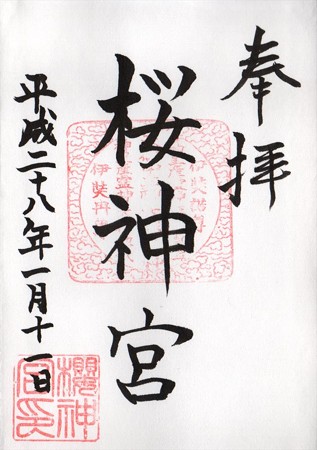 奉拝
桜神宮
平成二十八年一月十一日
櫻神
宮印